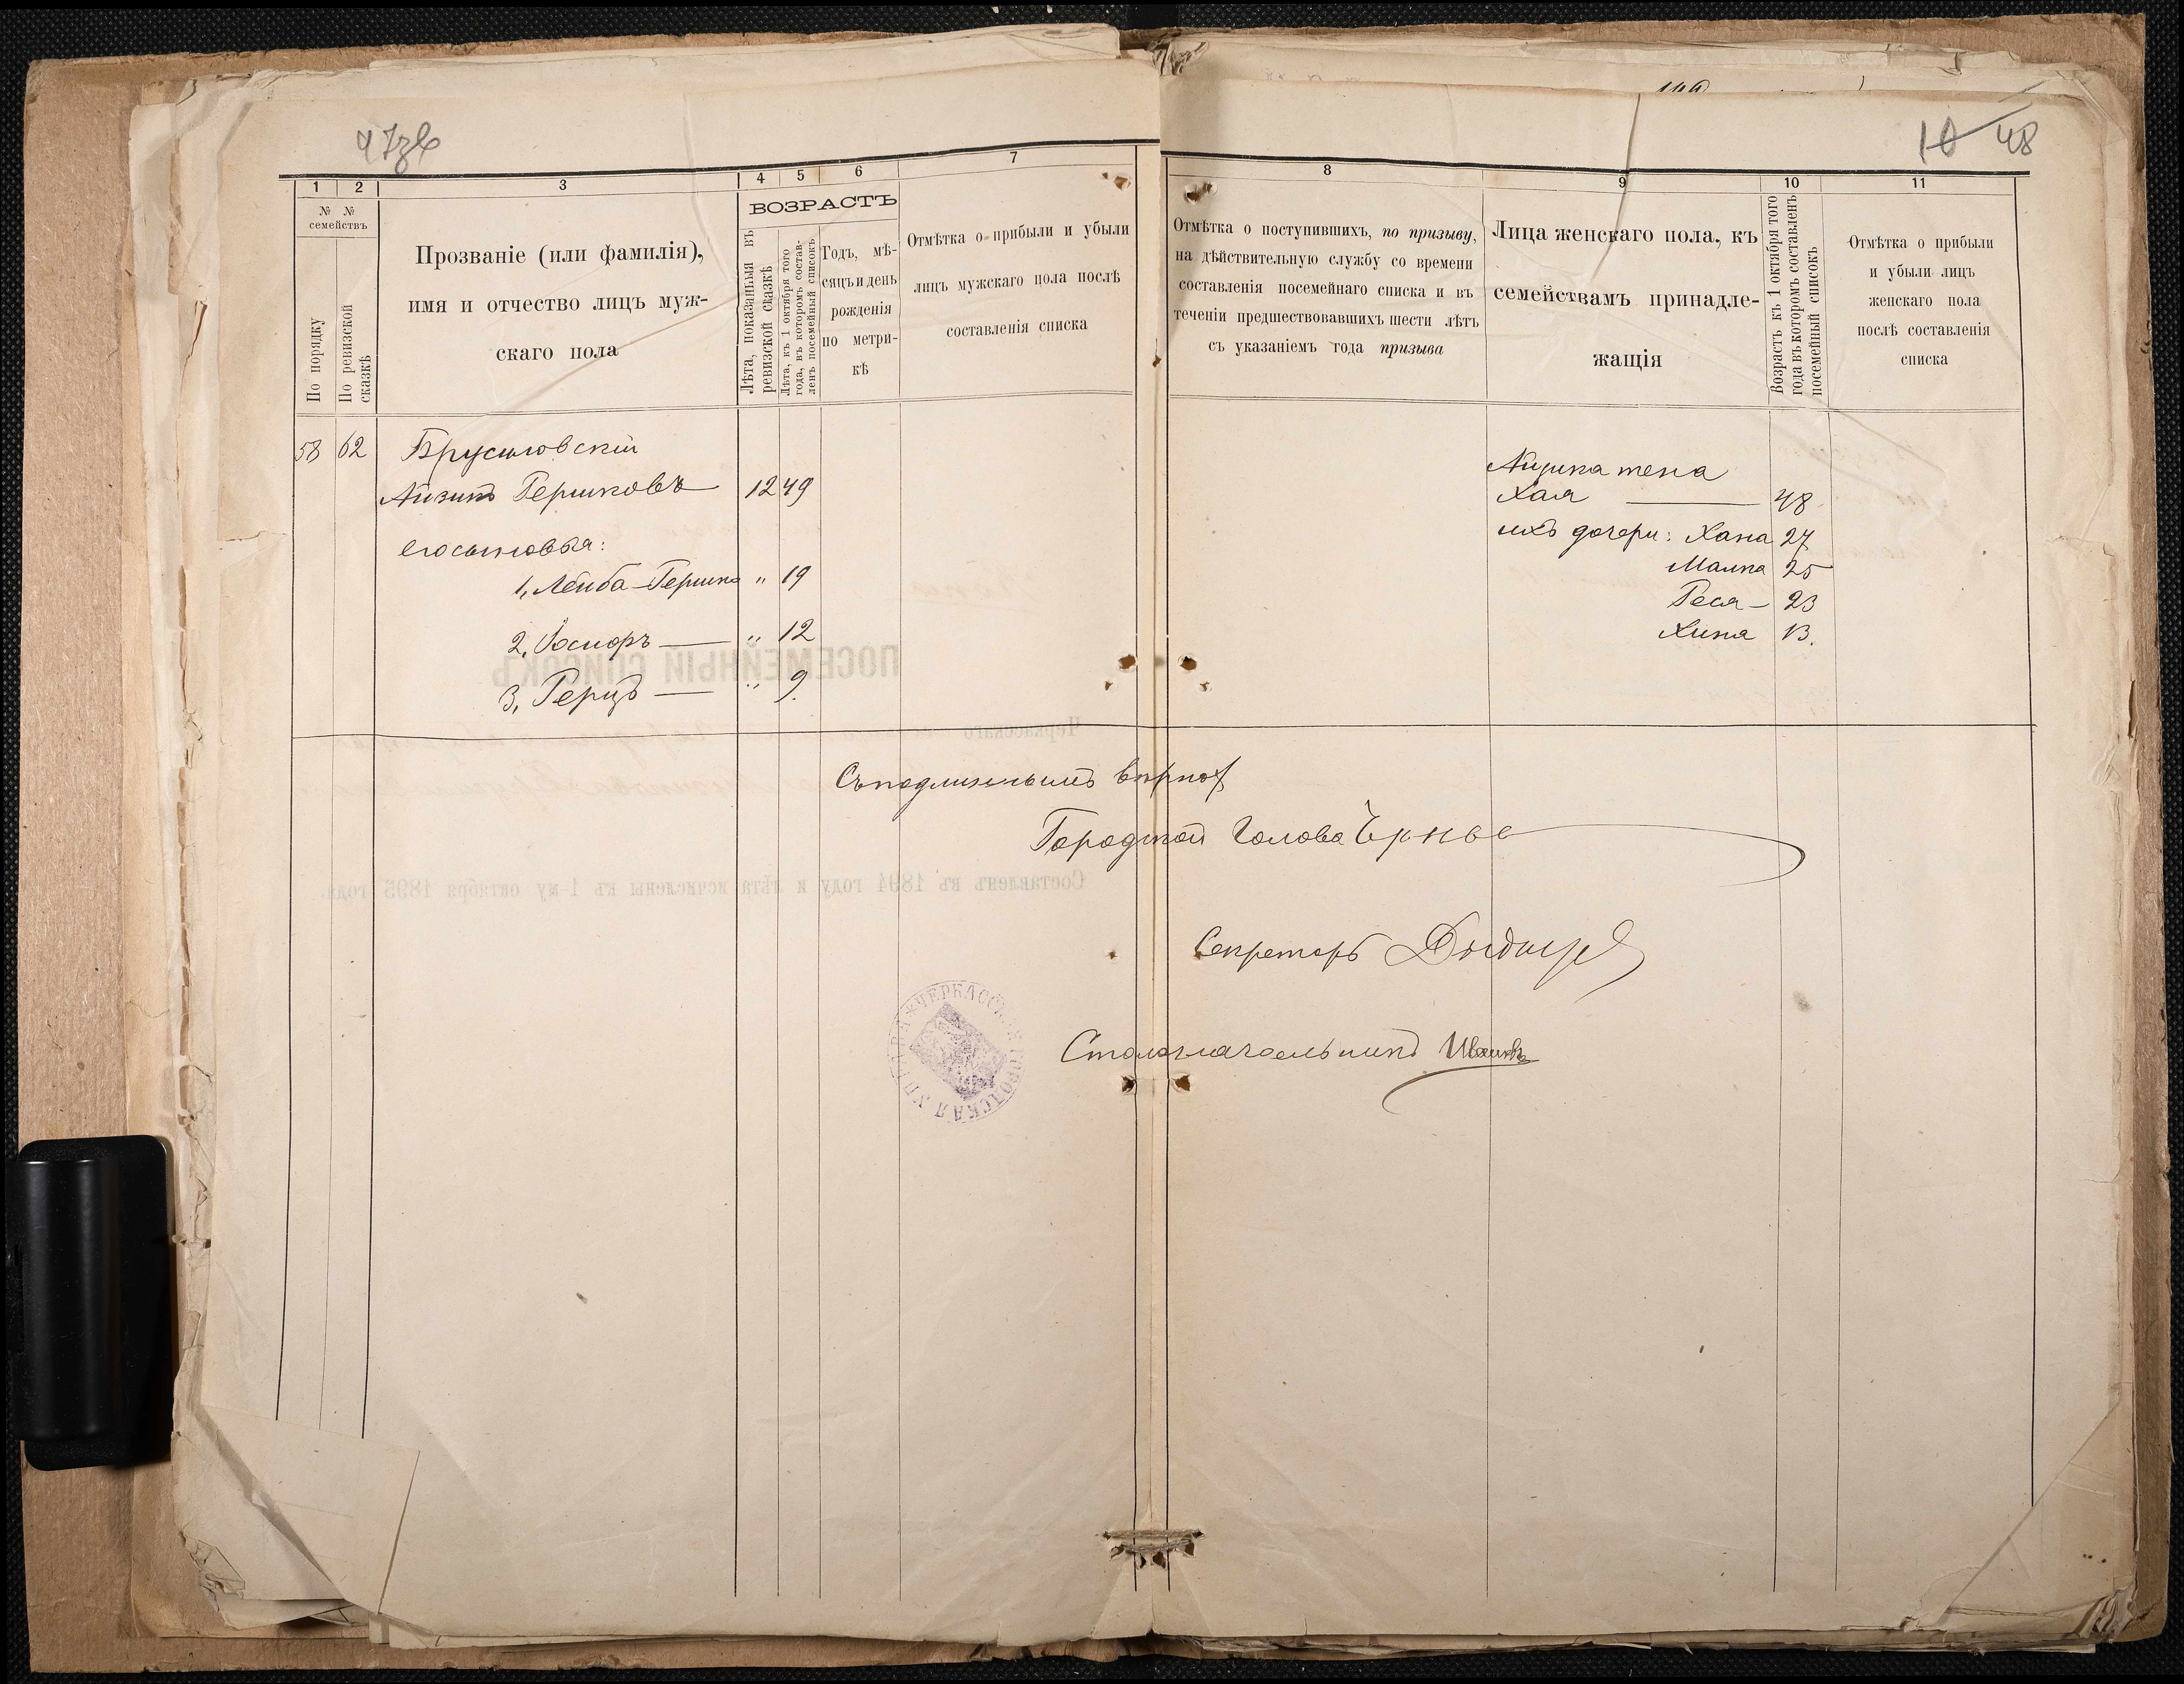 47зв
1 2 3 4 5 6 7
№ №
семействъ
По порядку
По ревизской сказкѣ
Прозваніе (или фамилія),
имя и отчество лицъ муж-
скаго пола
ВОЗРАСТЪ
Лѣта, показанныя въ
ревизской сказкѣ
Лѣта, къ 1 октября того
года, въ которомъ состав-
ленъ посемейный списокъ
Годъ, мѣ-
сяцъ и день
рожденія
по метри-
кѣ
Отмѣтка о прибыли и убыли
лицъ мужскаго пола послѣ
составленія списка
58 62 Брусиловскій
Айзикъ Гершковъ 12 49
его сыновья:
1, Лейба-Гершко " 19
2, Іосифъ — " 12
3, Герцъ — " 9.
10 48
8 9 10 11
Отмѣтка о поступившихъ, по призыву,
на дѣйствительную службу со времени
составленія посемейнаго списка и въ
теченіи предшествовавшихъ шести лѣтъ
съ указаніемъ года призыва
Лица женскаго пола, къ
семействамъ принадле-
жащія
Возрастъ къ 1 октября того
года въ которомъ составленъ
посемейный списокъ
Отмѣтка о прибыли
и убыли лицъ
женскаго пола
послѣ составленія
списка
жена
Хая — 48
ихъ дочери: Хана 27
Малка 25
Рися — 23
Хина 13.
Съ подлиннымъ вѣрно
Городской Голова
Секретарь
Столоначальникъ
ЧЕРКАССКАЯ ГОРОДСКАЯ УПРАВА
ПОСЕМЕЙНЫЙ СПИСОКЪ
Черкасскаго
Составленъ въ 1894 году и лѣта исчислены къ 1-му октября 1895 года.